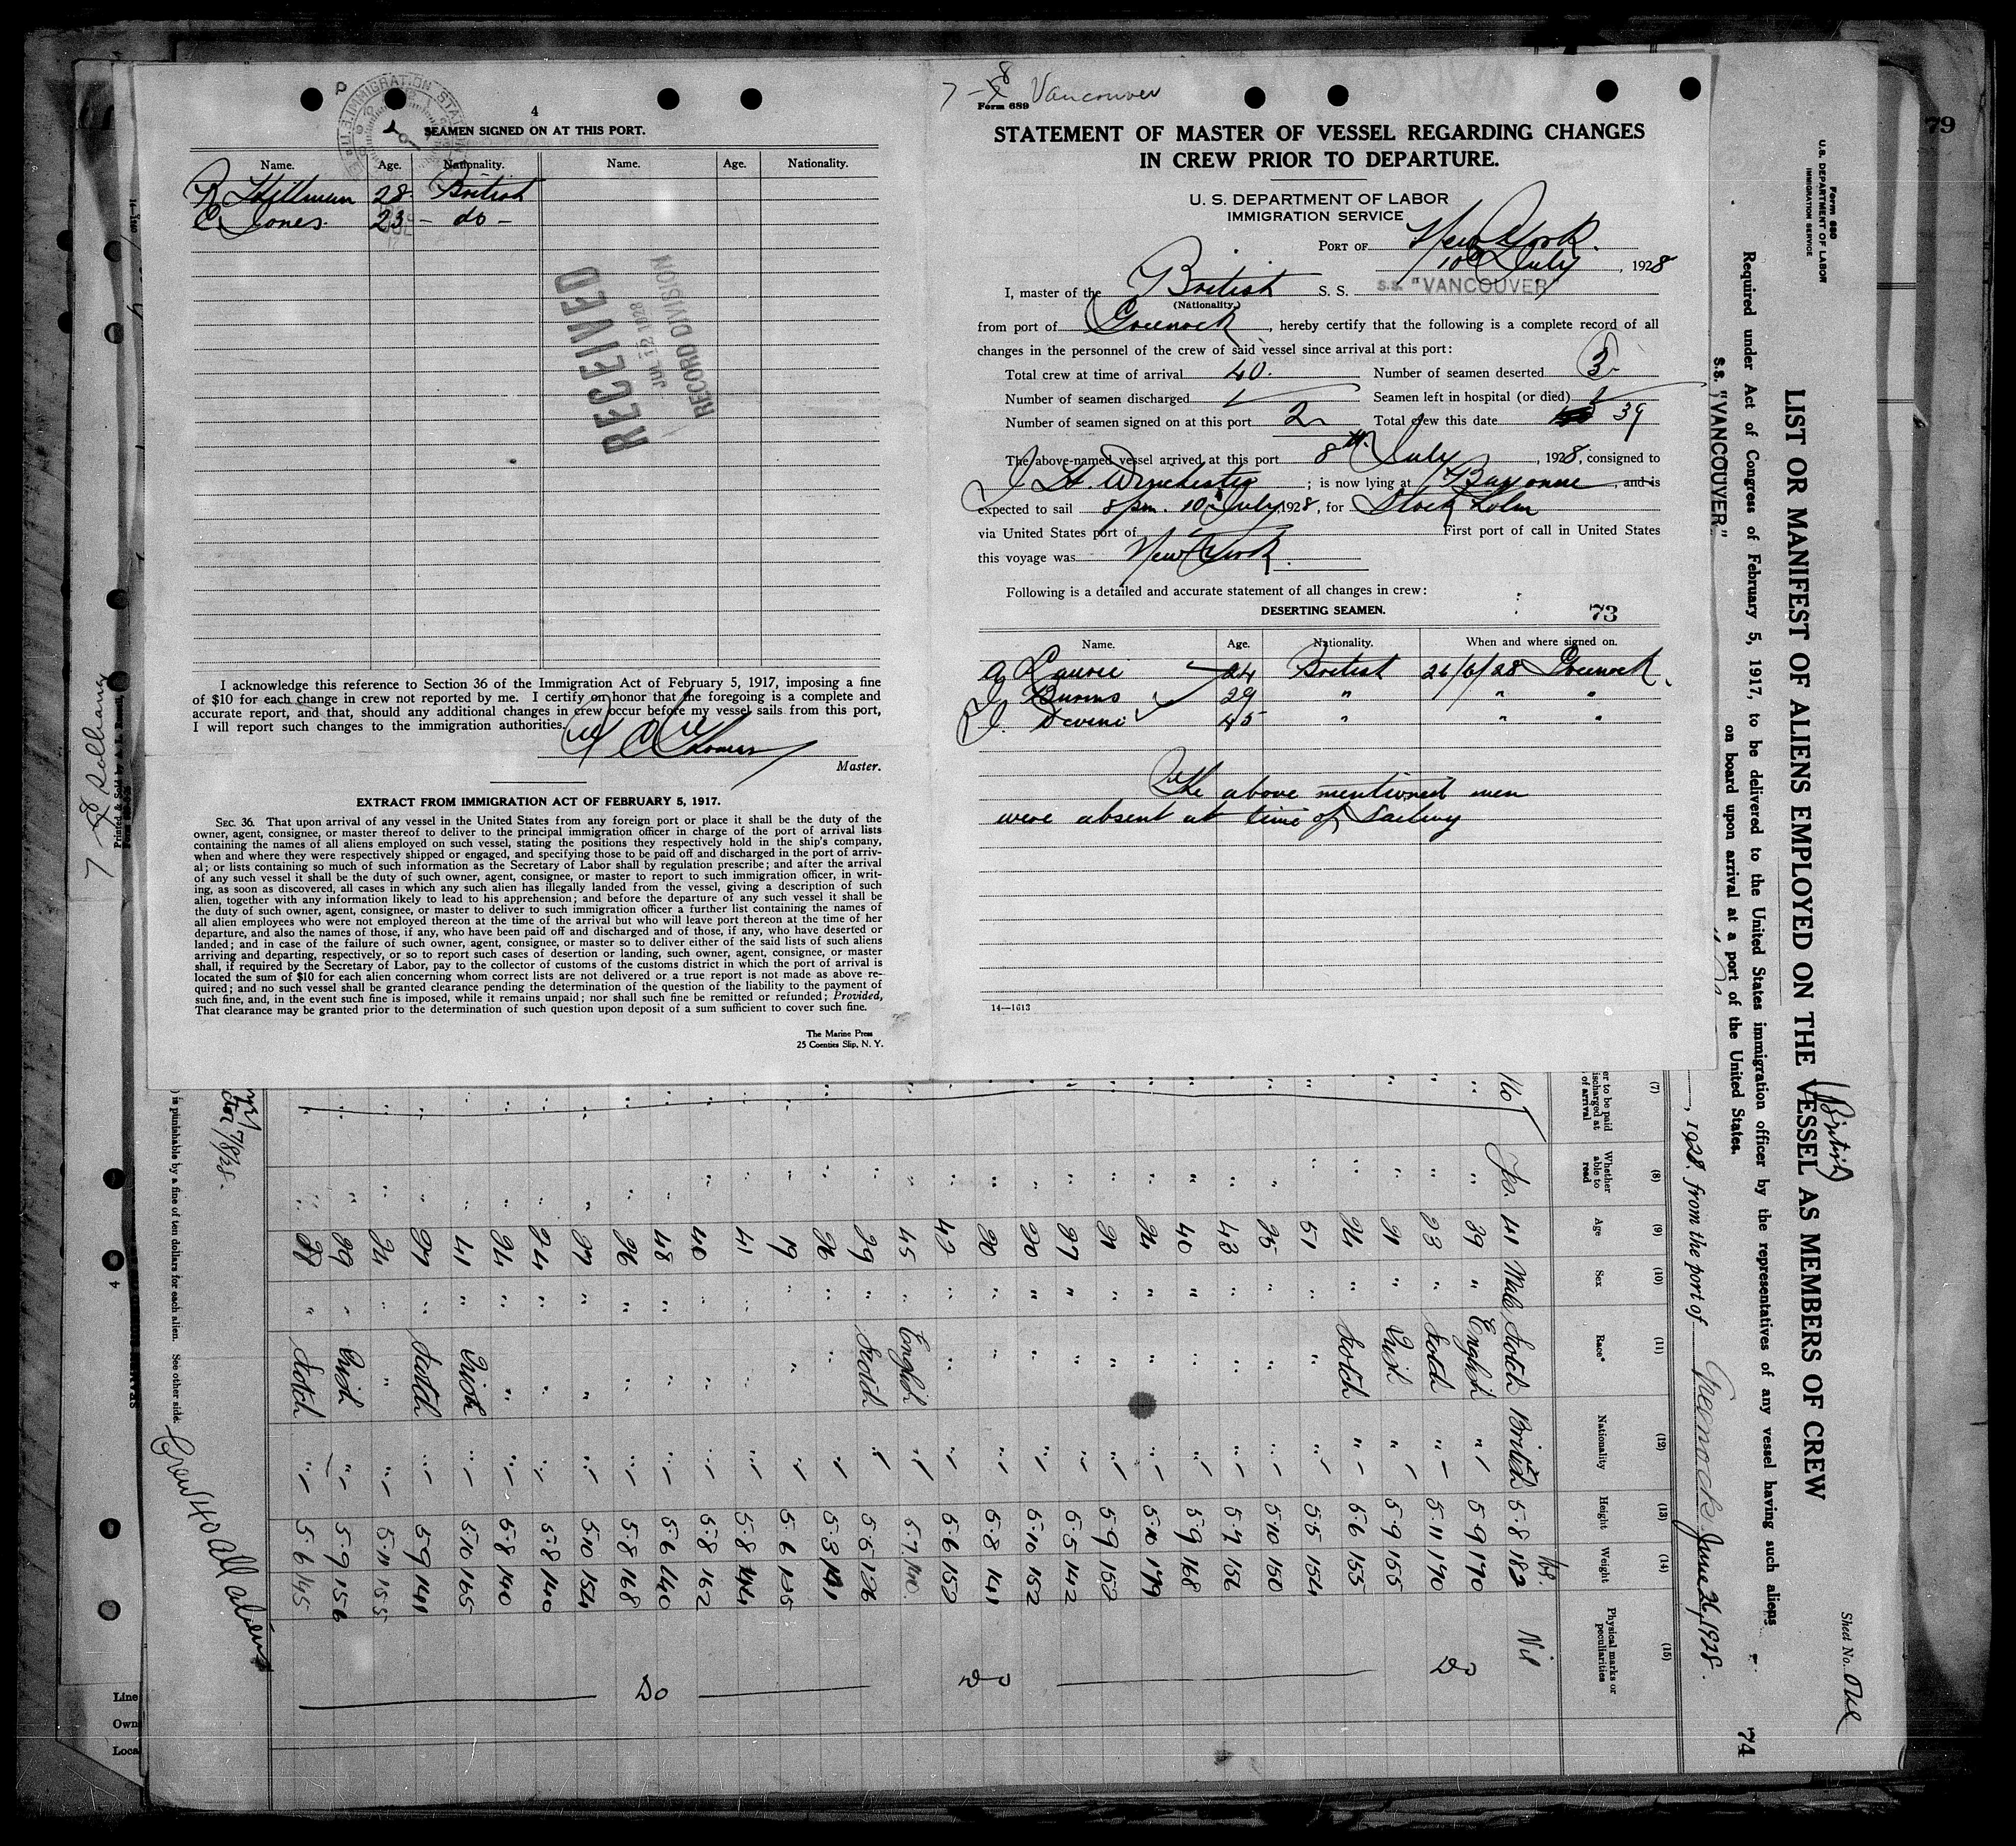 4
SEAMEN SIGNED ON AT THIS PORT.
Name. Age. Nationality. Name. Age. Nationality.
R 28 British
C Jones 23 - do -
RECEIVED
JUL 12 1928
RECORD DIVISION
I acknowledge this reference to Section 36 of the Immigration Act of February 5, 1917, imposing a fine
of $10 for each change in crew not reported by me. I certify on honor that the foregoing is a complete and
accurate report, and that, should any additional changes in crew occur before my vessel sails from this port,
I will report such changes to the immigration authorities.
Master.
EXTRACT FROM IMMIGRATION ACT OF FEBRUARY 5, 1917.
SEC. 36. That upon arrival of any vessel in the United States from any foreign port or place it shall be the duty of the
owner, agent, consignee, or master thereof to deliver to the principal immigration officer in charge of the port of arrival lists
containing the names of all aliens employed on such vessel, stating the positions they respectively hold in the ship's company,
when and where they were respectively shipped or engaged, and specifying those to be paid off and discharged in the port of arriv-
al; or lists containing so much of such information as the Secretary of Labor shall by regulation prescribe; and after the arrival
of any such vessel it shall be the duty of such owner, agent, consignee, or master to report to such immigration officer, in writ-
ing, as soon as discovered, all cases in which any such alien has illegally landed from the vessel, giving a description of such
alien, together with any information likely to lead to his apprehension; and before the departure of any such vessel it shall be
the duty of such owner, agent, consignee, or master to deliver to such immigration officer a further list containing the names of
all alien employees who were not employed thereon at the time of the arrival but who will leave port thereon at the time of her
departure, and also the names of those, if any, who have been paid off and discharged and of those, if any, who have deserted or
landed; and in case of the failure of such owner, agent, consignee, or master so to deliver either of the said lists of such aliens
arriving and departing, respectively, or so to report such cases of desertion or landing, such owner, agent, consignee, or master
shall, if required by the Secretary of Labor, pay to the collector of customs of the customs district in which the port of arrival is
located the sum of $10 for each alien concerning whom correct lists are not delivered or a true report is not made as above re-
quired; and no such vessel shall be granted clearance pending the determination of the question of the liability to the payment of
such fine, and, in the event such fine is imposed, while it remains unpaid; nor shall such fine be remitted or refunded; Provided,
That clearance may be granted prior to the determination of such question upon deposit of a sum sufficient to cover such fine.
The Marine Press
25 Coenties Slip, N. Y.
7-8 Vancouver
Form 689
STATEMENT OF MASTER OF VESSEL REGARDING CHANGES
IN CREW PRIOR TO DEPARTURE.
U. S. DEPARTMENT OF LABOR
IMMIGRATION SERVICE
PORT OF New York.
10 July, 1928
I, master of the British S. S. S.S. "VANCOUVER"
(Nationality)
from port of Greenock, hereby certify that the following is a complete record of all
changes in the personnel of the crew of said vessel since arrival at this port:
Total crew at time of arrival 40. Number of seamen deserted 3
Number of seamen discharged Seamen left in hospital (or died)
Number of seamen signed on at this port 2 Total crew this date 39
The above-named vessel arrived at this port 8th July, 1928, consigned to
J H Winchester; is now lying at Bayonne, and is
expected to sail 8 pm. 10 July 1928, for Stockholm
via United States port of First port of call in United States
this voyage was New York.
Following is a detailed and accurate statement of all changes in crew:
DESERTING SEAMEN. 73
Name. Age. Nationality. When and where signed on.
Laurie 24 British 26/6/28 Greenock.
Burns 29 " " "
J. Devine 45 " " "
The above mentioned men
were absent at time of Sailing
14—1613
79
Form 680
U.S. DEPARTMENT OF LABOR
IMMIGRATION SERVICE
Sheet No. One
British
LIST OR MANIFEST OF ALIENS EMPLOYED ON THE VESSEL AS MEMBERS OF CREW
Required under Act of Congress of February 5, 1917, to be delivered to the United States immigration officer by the representatives of any vessel having such aliens
on board upon arrival at a port of the United States.
74
S.S. "VANCOUVER"
, 1928. from the port of Greenock June 26, 1928.
(7) (8) (9) (10) (11) (12) (13) (14) (15)
Whether able to read Age Sex Race* Nationality Height Weight Physical marks or peculiarities
No Yes. 41 Male Scotch British 5.8 182 Nil
" " 39 " English " 5.9 170
" " 23 " Scotch " 5.11 170 Do
" " 21 " Irish " 5.9 155
" " 24 " Scotch " 5.6 155
" " 51 " " " 5.5 154
" " 25 " " " 5.10 150
" " 43 " " " 5.7 156
" " 40 " " " 5.9 168
" " 24 " " " 5.10 179
" " 21 " " " 5.9 152
" " 27 " " " 5.5 142
" " 20 " " " 5.10 152
" " 20 " " " 5.8 141 Do
" " 42 " " " 5.6 152
" " 45 " English " 5.7 140
" " 29 " Scotch " 5.5 126
" " 26 " " " 5.3
" " 19 " " " 5.6 125
" " 41 " " " 5.8 144
" " 40 " " " 5.8 162
" " 48 " " " 5.6 140
" " 26 " " " 5.8 168 Do
" " 27 " " " 5.10 154
" " 24 " " " 5.8 140
" " 24 " " " 5.8 140
" " 41 " Irish " 5.10 165
" " 27 " Scotch " 5.9 141
" " 24 " " " 5.11 155
" " 29 " Irish " 5.9 156
" " " Scotch " 5.6 145
Crew 40 all aliens
7/8/28.
) is punishable by a fine of ten dollars for each alien. See other side.
Line
Own
Loca